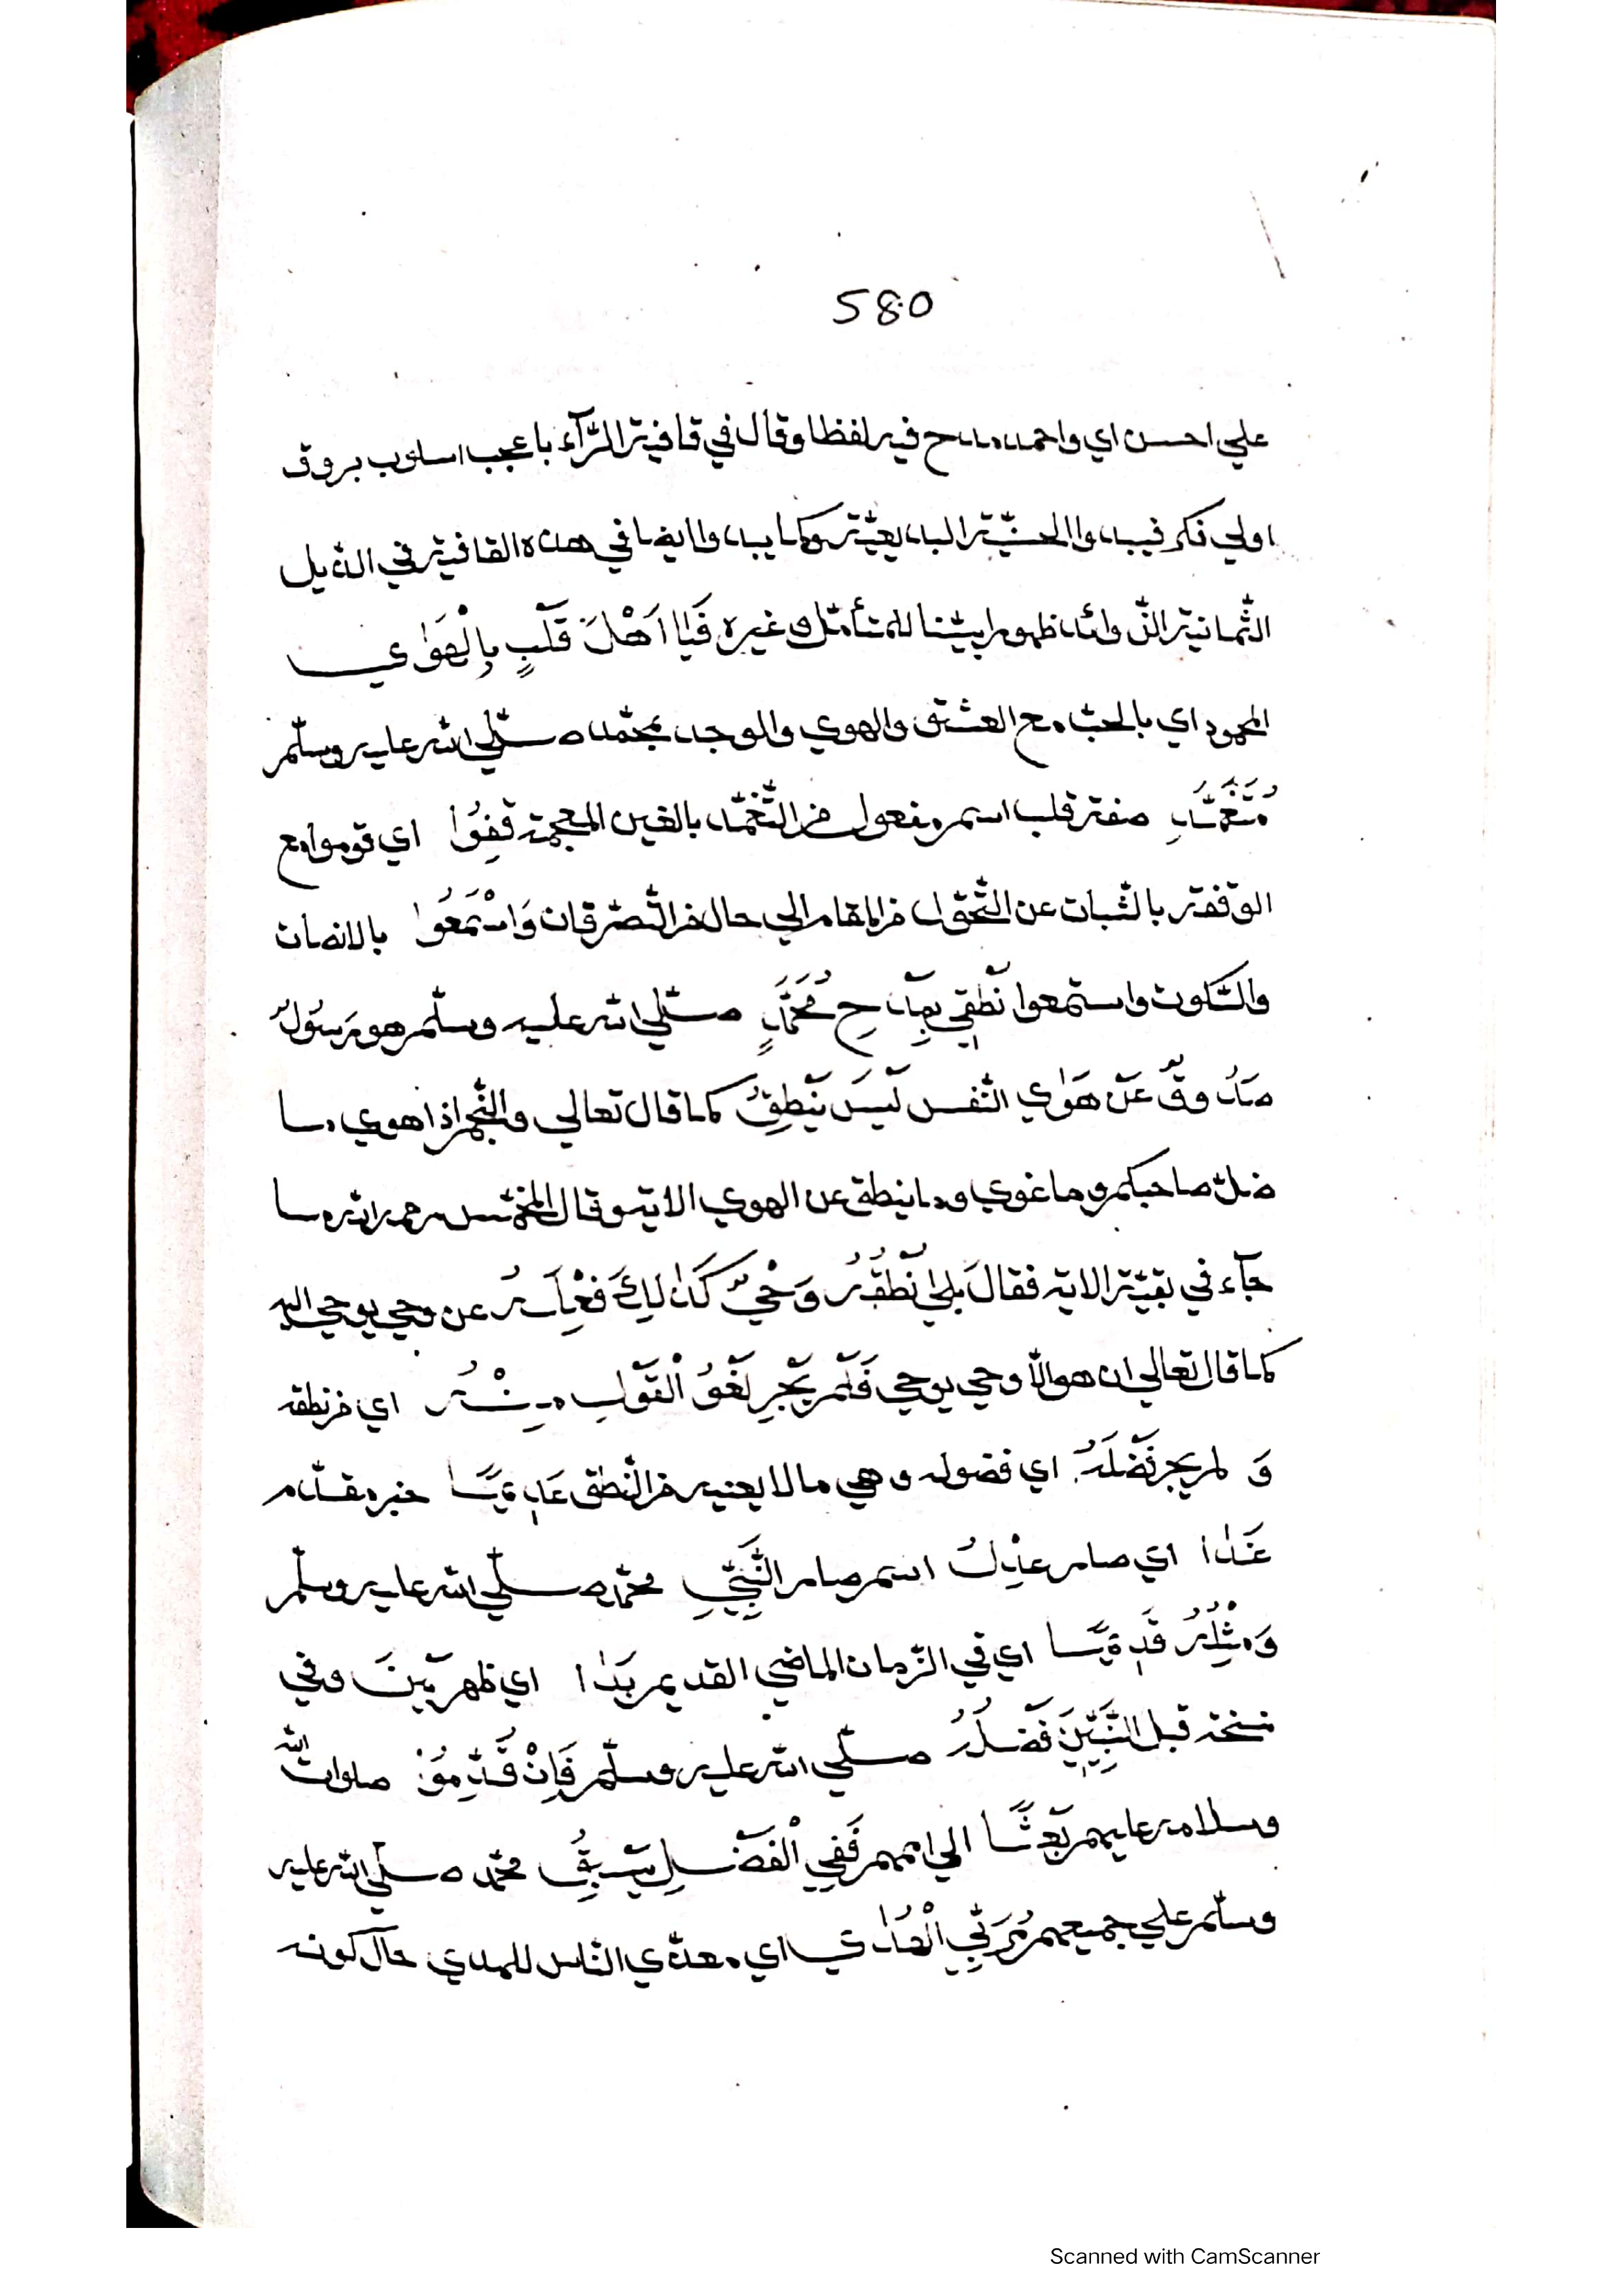 580
علي احسن اي واحمد مدح فيه لفظا وقال في قافية الرّآء باعجب اسلوب بروق
اولي فكر فيبدوا الحسنيّة البديعيّة وكما يبدوا ايضا في هذه القافية في الذّيل
الثّمانية الذّوائد ظهورا بيّنا للمتأمّل وغيره فَيَا اَهْلَ قَلْبٍ بِالْهَوٰي
المحمود اي بالحبّ مع العشق والهوي والوجد بمحمّد صلّي الله عليه وسلّم
مُتَغَمَّدٍ صفة قلب اسم مفعول من التّغمّد بالغين المعجمة قِفُوْا اي قوموا مع
الوقفة بالثّبات عن التّحوّل من المقام الي حال من التّصرّفات وَاسْتَمَعُوا بالانصات
والسّكوت واستمعوا نُطْقِي بِمِدْحِ مُحَمَّدٍ صلّي الله عليه وسلّم هو رَسُوْلٌ
صَدُوقٌ عَنْ هَوٰي النّفس لَيْسَ يَنْطِقُ كما قال تعالي والنّجم اذا هوي ما
ضلّ صاحبكم وما غوي وما ينطق عن الهوي الاية وقال المخمّس رحمه الله ما
جآء في بقيّة الاية فقالَ بلي نُطْقُهُ وَحْيٌ كَذٰلِكَ فِعْلُهُ عن وحي يوحي اليه
كما قال تعالي ان هو الّا وحي يوحي فَلَمْ يَجْرِ لَغْوُ الْقَوْلِ مِنْهُ اي من نطقه
وَ لم يجر فَضْلُهُ اي فضوله وهي ما لا يعنيه من النّطق عَدِيْمًا خبر مقدّم
غَدٰا اي صار عِدْلُ اسم صار النَّبِيِّ محمّد صلّي الله عليه وسلّم
وَمِثْلُهُ قَدِيْمًا اي في الزّمان الماضي القديم بَدٰا اي ظهر بَيْنَ وفي
نسخة قبل النَّبِيِّيْنَ فَضْلُهُ صلّي الله عليه وسلّم فَاِنْ قُدِّمُوْا صلوات الله
وسلامه عليهم بَعْثًا الي اممهم فَفِي الْفَضْلِ يَسْبِقُ محمّد صلّي الله عليه
وسلّم علي جميعهم مُرَبِّي الْهُدٰي اي مهدي النّاس للهدي حال كونه
Scanned with CamScanner